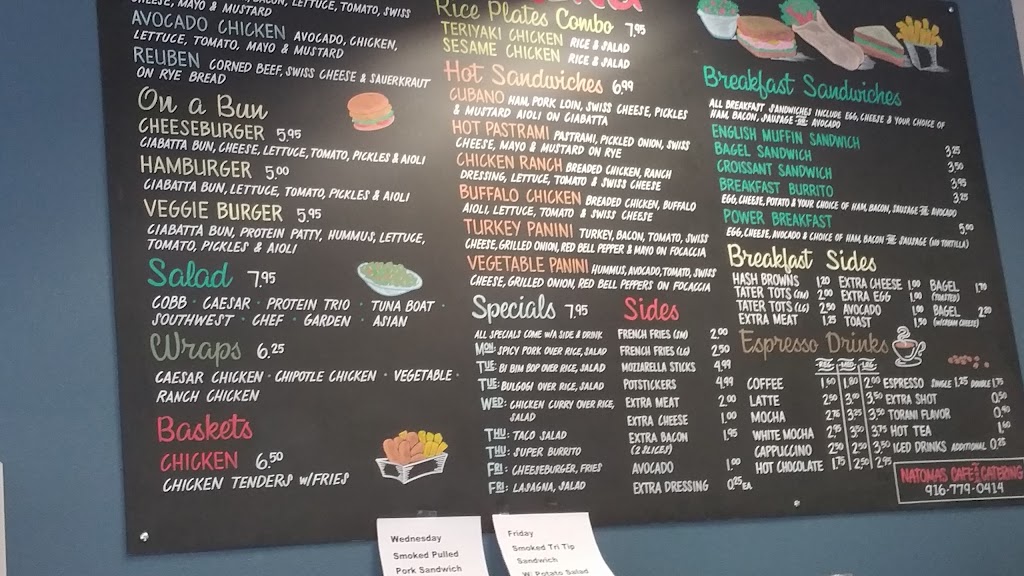 BACON, LETTUCE, TOMATO, SWISS
CHEESE, MAYO & MUSTARD
AVOCADO CHICKEN AVOCADO, CHICKEN,
LETTUCE, TOMATO, MAYO & MUSTARD
REUBEN CORNED BEEF, SWISS CHEESE & SAUERKRAUT
ON RYE BREAD
On a Bun
CHEESEBURGER 5.95
CIABATTA BUN, CHEESE, LETTUCE, TOMATO, PICKLES & AIOLI
HAMBURGER 5.00
CIABATTA BUN, LETTUCE, TOMATO, PICKLES & AIOLI
VEGGIE BURGER 5.95
CIABATTA BUN, PROTEIN PATTY, HUMMUS, LETTUCE,
TOMATO, PICKLES & AIOLI
Salad 7.95
COBB · CAESAR · PROTEIN TRIO · TUNA BOAT ·
SOUTHWEST · CHEF · GARDEN · ASIAN
Wraps 6.25
CAESAR CHICKEN · CHIPOTLE CHICKEN · VEGETABLE ·
RANCH CHICKEN
Baskets
CHICKEN 6.50
CHICKEN TENDERS w/FRIES
Rice Plates Combo 7.95
TERIYAKI CHICKEN RICE & SALAD
SESAME CHICKEN RICE & SALAD
Hot Sandwiches 6.99
CUBANO HAM, PORK LOIN, SWISS CHEESE, PICKLES
& MUSTARD AIOLI ON CIABATTA
HOT PASTRAMI PASTRAMI, PICKLED ONION, SWISS
CHEESE, MAYO & MUSTARD ON RYE
CHICKEN RANCH BREADED CHICKEN, RANCH
DRESSING, LETTUCE, TOMATO & SWISS CHEESE
BUFFALO CHICKEN BREADED CHICKEN, BUFFALO
AIOLI, LETTUCE, TOMATO & SWISS CHEESE
TURKEY PANINI TURKEY, BACON, TOMATO, SWISS
CHEESE, GRILLED ONION, RED BELL PEPPER & MAYO ON FOCACCIA
VEGETABLE PANINI HUMMUS, AVOCADO, TOMATO, SWISS
CHEESE, GRILLED ONION, RED BELL PEPPERS ON FOCACCIA
Specials 7.95
ALL SPECIALS COME W/A SIDE & DRINK
MON: SPICY PORK OVER RICE, SALAD
TUE: BI BIM BOP OVER RICE, SALAD
TUE: BULGOGI OVER RICE, SALAD
WED: CHICKEN CURRY OVER RICE,
SALAD
THU: TACO SALAD
THU: SUPER BURRITO
FRI: CHEESEBURGER, FRIES
FRI: LASAGNA, SALAD
Sides
FRENCH FRIES (SM) 2.00
FRENCH FRIES (LG) 2.50
MOZZARELLA STICKS 4.99
POTSTICKERS 4.99
EXTRA MEAT 2.00
EXTRA CHEESE 1.00
EXTRA BACON 1.95
(2 SLICES)
AVOCADO 1.00
EXTRA DRESSING 0.25 EA
Breakfast Sandwiches
ALL BREAKFAST SANDWICHES INCLUDE EGG, CHEESE & YOUR CHOICE OF
HAM, BACON, SAUSAGE OR AVOCADO
ENGLISH MUFFIN SANDWICH 3.25
BAGEL SANDWICH 3.50
CROISSANT SANDWICH 3.95
BREAKFAST BURRITO 3.25
EGG, CHEESE, POTATO & YOUR CHOICE OF HAM, BACON, SAUSAGE OR AVOCADO
POWER BREAKFAST 5.00
EGG, CHEESE, AVOCADO & CHOICE OF HAM, BACON OR SAUSAGE (NO TORTILLA)
Breakfast Sides
HASH BROWNS 1.20 EXTRA CHEESE 1.00 BAGEL 1.70
TATER TOTS (SM) 2.00 EXTRA EGG 1.00 (TOASTED)
TATER TOTS (LG) 2.50 AVOCADO 1.00 BAGEL 2.20
EXTRA MEAT 1.25 TOAST 1.50 (W/CREAM CHEESE)
Espresso Drinks
COFFEE 1.60 1.80 2.00 ESPRESSO SINGLE 1.25 DOUBLE 1.75
LATTE 2.50 3.00 3.50 EXTRA SHOT 0.50
MOCHA 2.75 3.25 3.50 TORANI FLAVOR 0.40
WHITE MOCHA 2.95 3.50 3.75 HOT TEA 1.60
CAPPUCCINO 2.50 2.50 3.50 ICED DRINKS ADDITIONAL 0.25
HOT CHOCOLATE 1.75 2.50 2.95
NATOMAS CAFE AND CATERING
916-779-0414
Wednesday
Smoked Pulled
Pork Sandwich
Friday
Smoked Tri Tip
Sandwich
W: Potato Salad